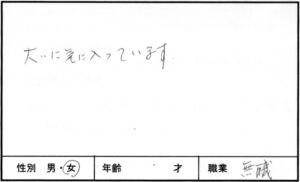 大いに気に入っています.
性別 男・女 年齢 才 職業 無職